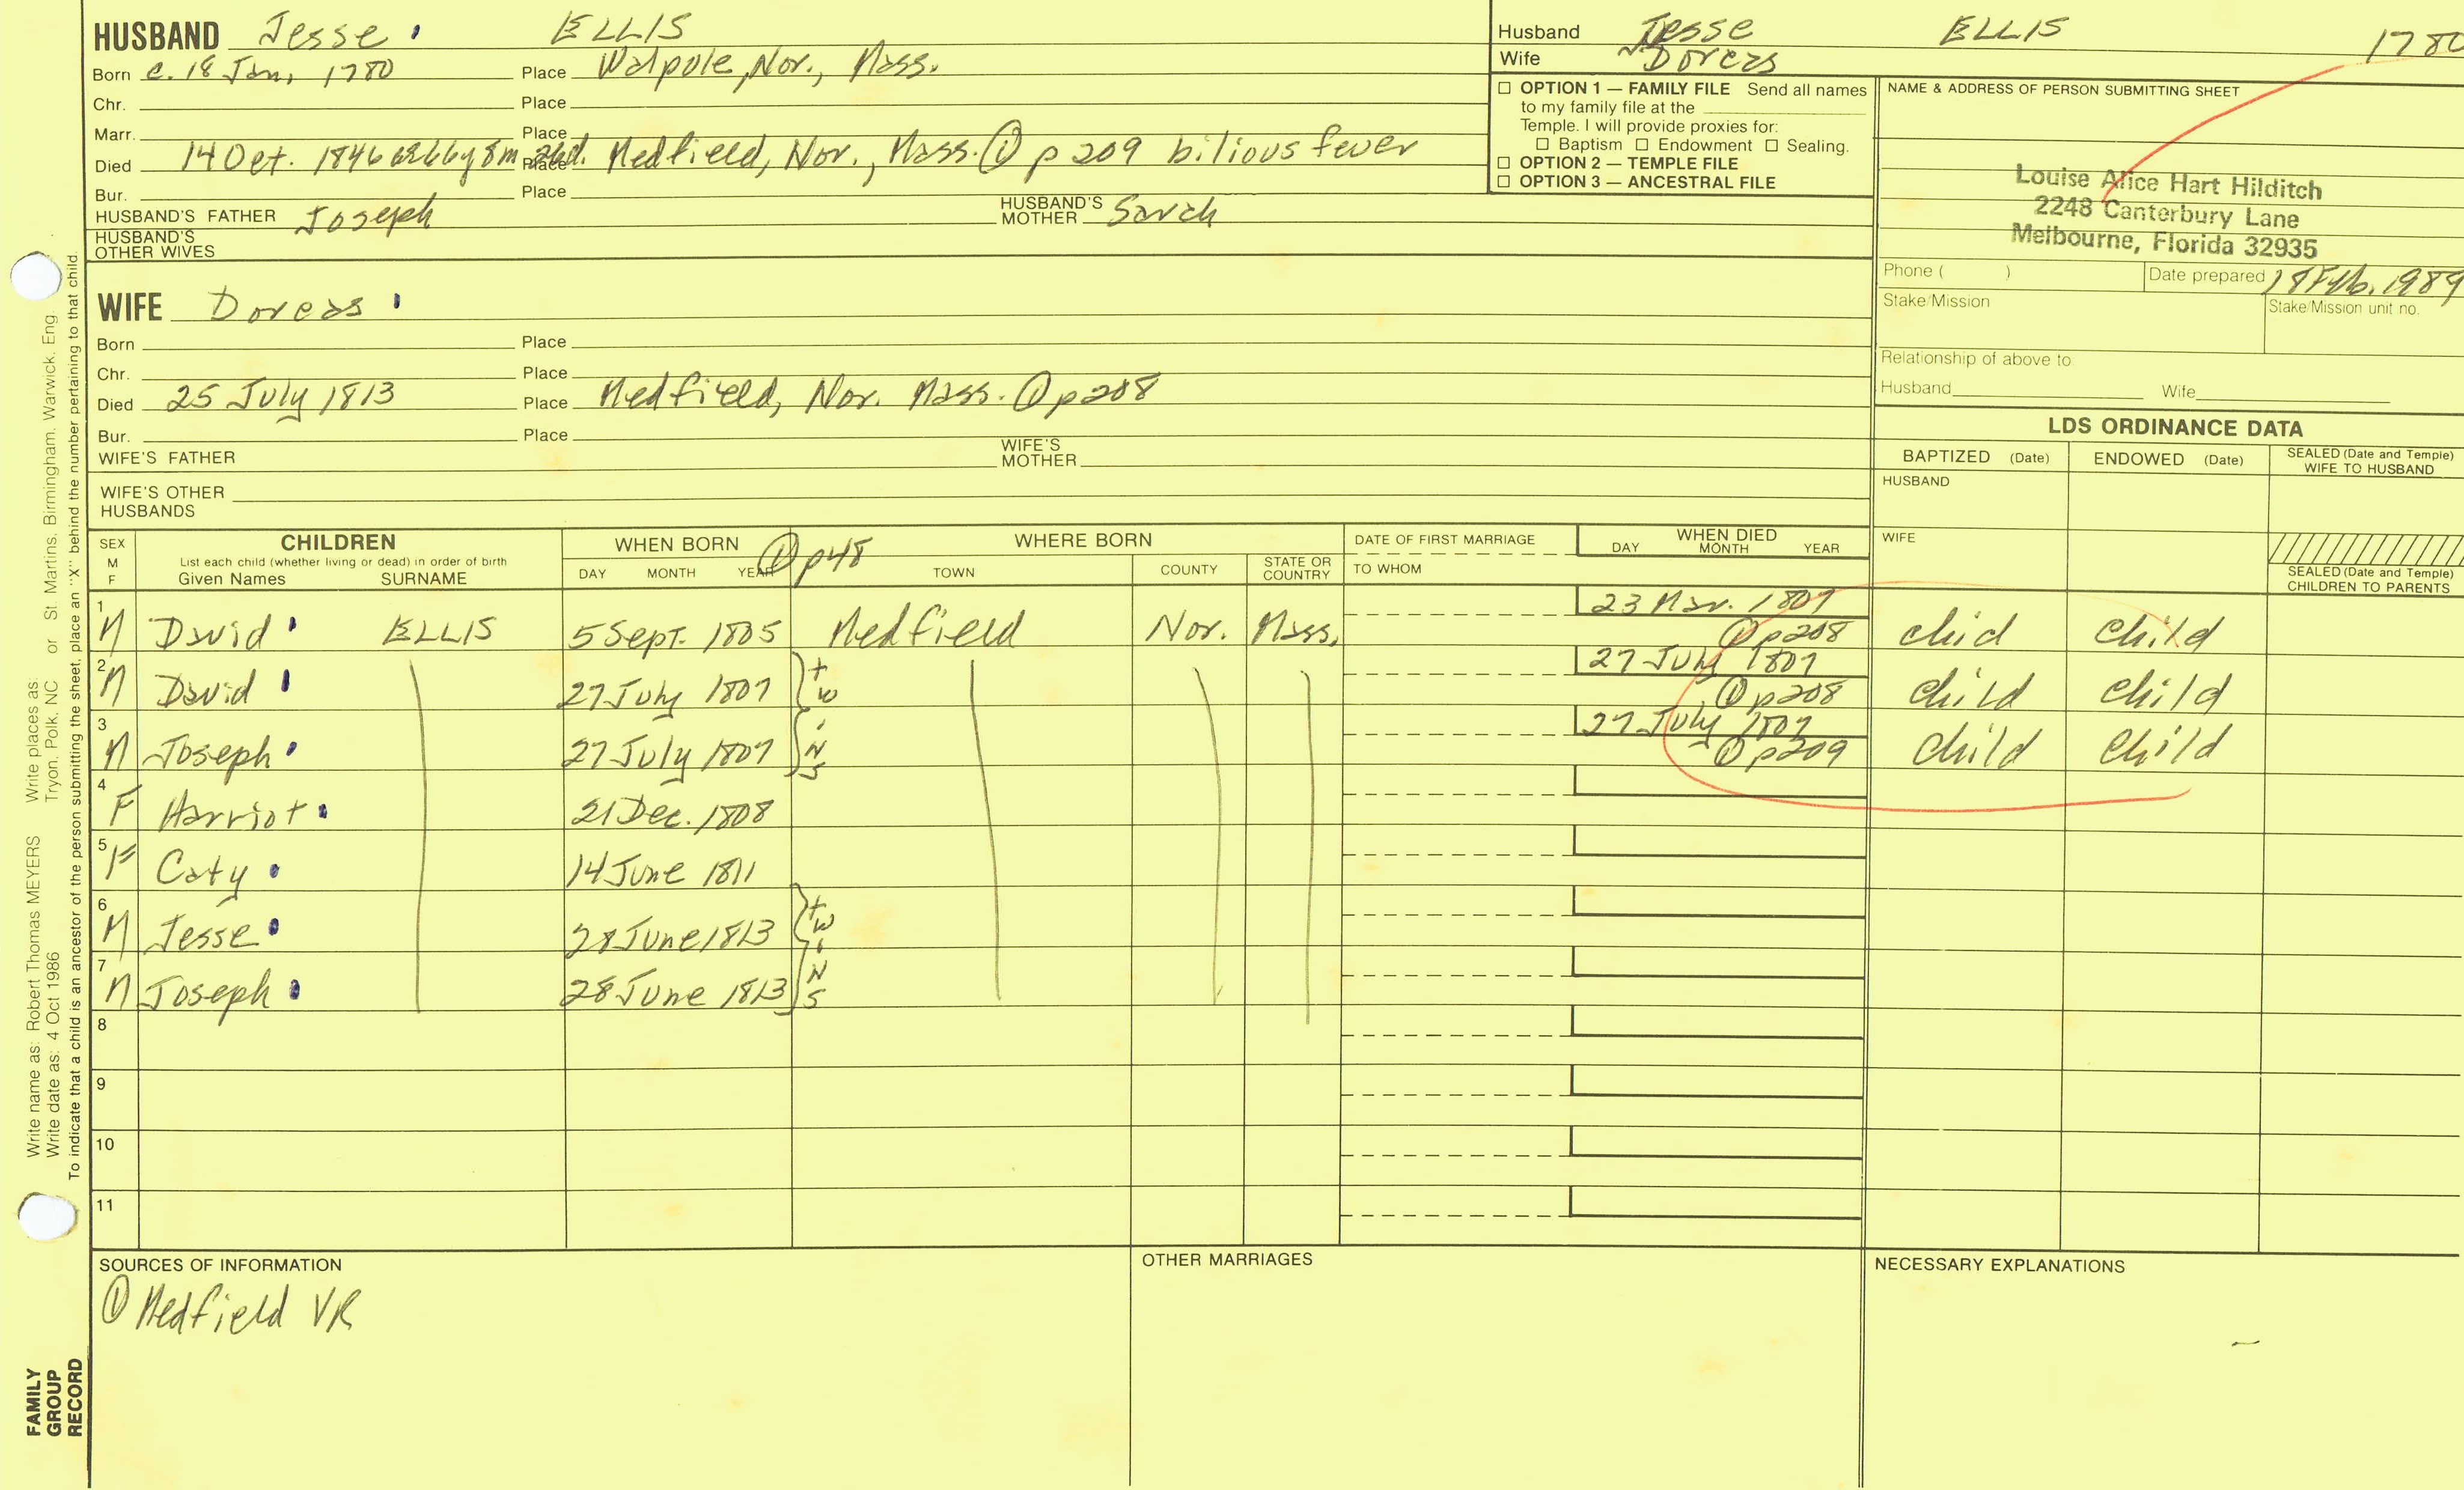 HUSBAND Jesse ELLIS
Born c. 18 Jan, 1780 Place Walpole, Nor., Mass.
Chr. Place
Marr. Place
Died 14 Oct. 1846 ae 66y 8m 26d. Place Medfield, Nor., Mass. ① p 209 bilious fever
Bur. Place
HUSBAND'S FATHER Joseph HUSBAND'S MOTHER Sarah
HUSBAND'S OTHER WIVES
WIFE Dorcas
Born Place
Chr. Place
Died 25 July 1813 Place Medfield, Nor. Mass. ① p208
Bur. Place
WIFE'S FATHER WIFE'S MOTHER
WIFE'S OTHER HUSBANDS
Husband Jesse ELLIS 1780
Wife Dorcas
☐ OPTION 1 — FAMILY FILE Send all names
to my family file at the
Temple. I will provide proxies for:
☐ Baptism ☐ Endowment ☐ Sealing.
☐ OPTION 2 — TEMPLE FILE
☐ OPTION 3 — ANCESTRAL FILE
NAME & ADDRESS OF PERSON SUBMITTING SHEET
Louise Alice Hart Hilditch
2248 Canterbury Lane
Melbourne, Florida 32935
Phone ( ) Date prepared 18 Feb. 1989
Stake/Mission Stake/Mission unit no.
Relationship of above to
Husband Wife
LDS ORDINANCE DATA
BAPTIZED (Date) ENDOWED (Date) SEALED (Date and Temple) WIFE TO HUSBAND
HUSBAND
WIFE
SEALED (Date and Temple) CHILDREN TO PARENTS
SEX M F CHILDREN
List each child (whether living or dead) in order of birth
Given Names SURNAME
WHEN BORN ① p48 WHERE BORN
DAY MONTH YEAR TOWN COUNTY STATE OR COUNTRY
DATE OF FIRST MARRIAGE
TO WHOM
WHEN DIED
DAY MONTH YEAR
1 M David ELLIS 5 Sept. 1805 Medfield Nor. Mass. 23 Mar. 1807 ① p208 chid child
2 M David 27 July 1807 27 July 1807 ① p208 child child
3 M Joseph 27 July 1807 twins 27 July 1807 ① p209 child child
4 F Harriot 21 Dec. 1808
5 F Caty 14 June 1811
6 M Jesse 28 June 1813
7 M Joseph 28 June 1813 twins
8
9
10
11
SOURCES OF INFORMATION
① Medfield VR
OTHER MARRIAGES
NECESSARY EXPLANATIONS
Write name as: Robert Thomas MEYERS Write places as: Tryon, Polk, NC or St. Martins, Birmingham, Warwick, Eng.
Write date as: 4 Oct 1986
To indicate that a child is an ancestor of the person submitting the sheet, place an "X" behind the number pertaining to that child.
FAMILY GROUP RECORD